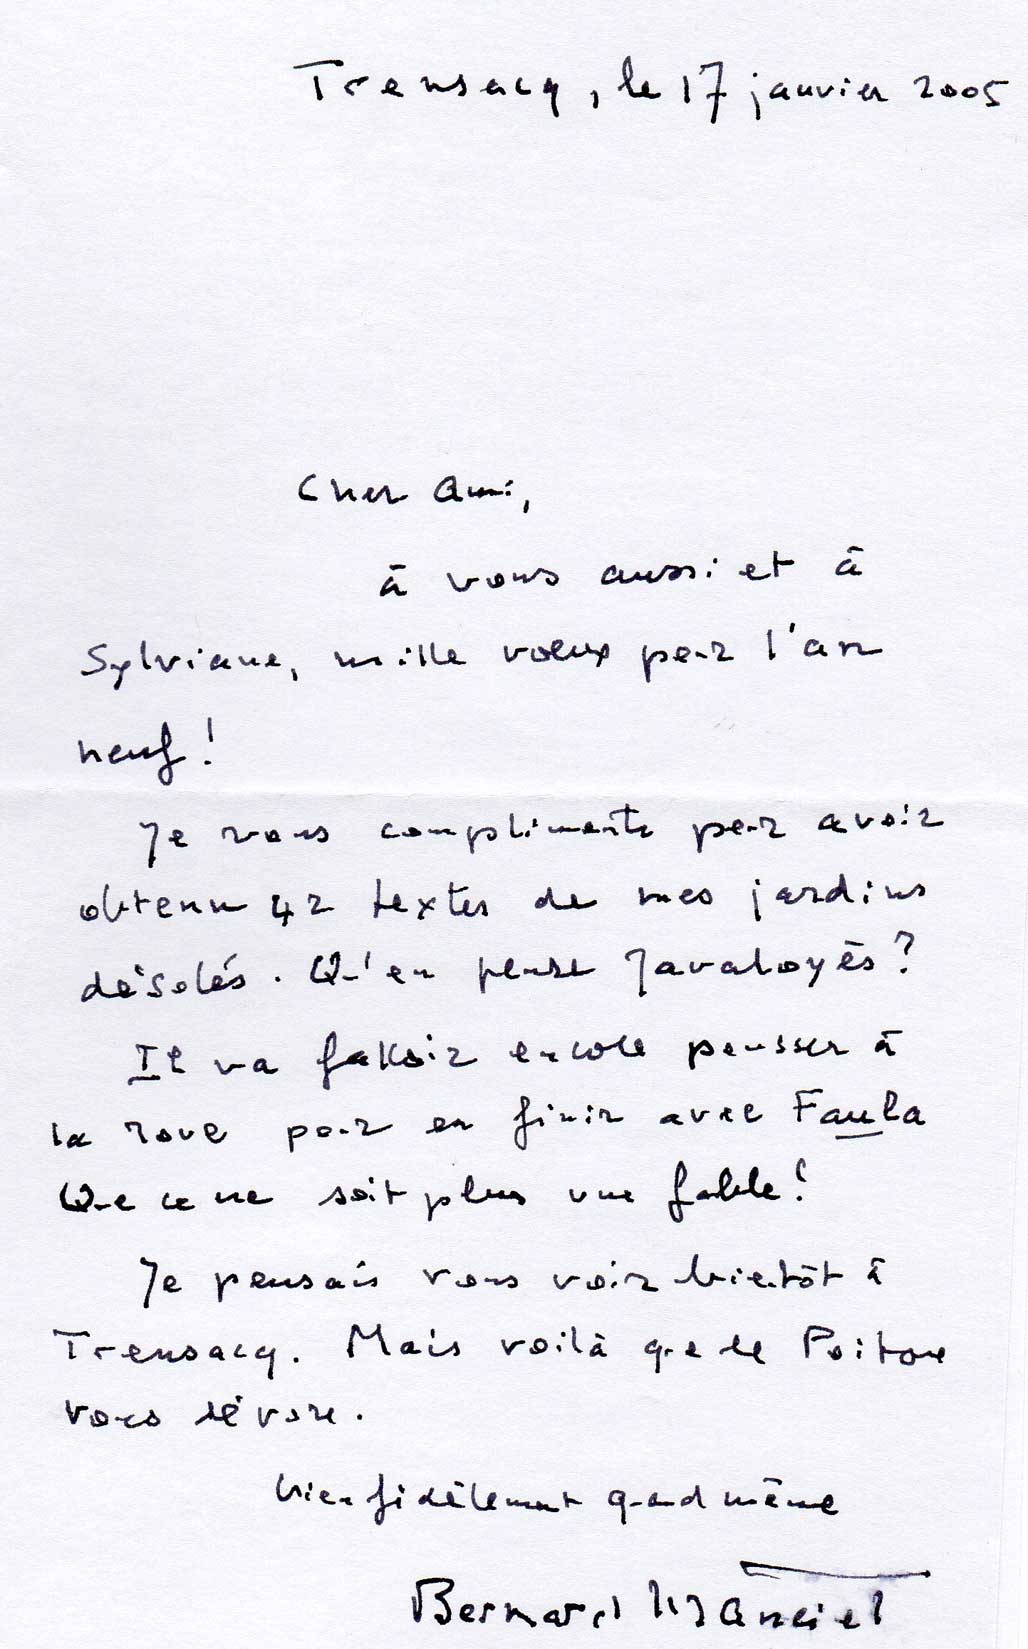 Trensacq, le 17 janvier 2005
Cher Ami,
à vous aussi et à
Sylviane, mille voeux pour l'an
neuf !
Je vous complimente pour avoir
obtenu 42 textes de mes jardins
désolés. Qu'en pense Javaloyès ?
Il va falloir encore pousser à
la roue pour en finir avec Faula
Que ce ne soit plus une fable !
Je pensais vous voir bientôt à
Trensacq. Mais voilà que le Poitou
vous dévore.
bien fidèlement quand même
Bernard Manciet